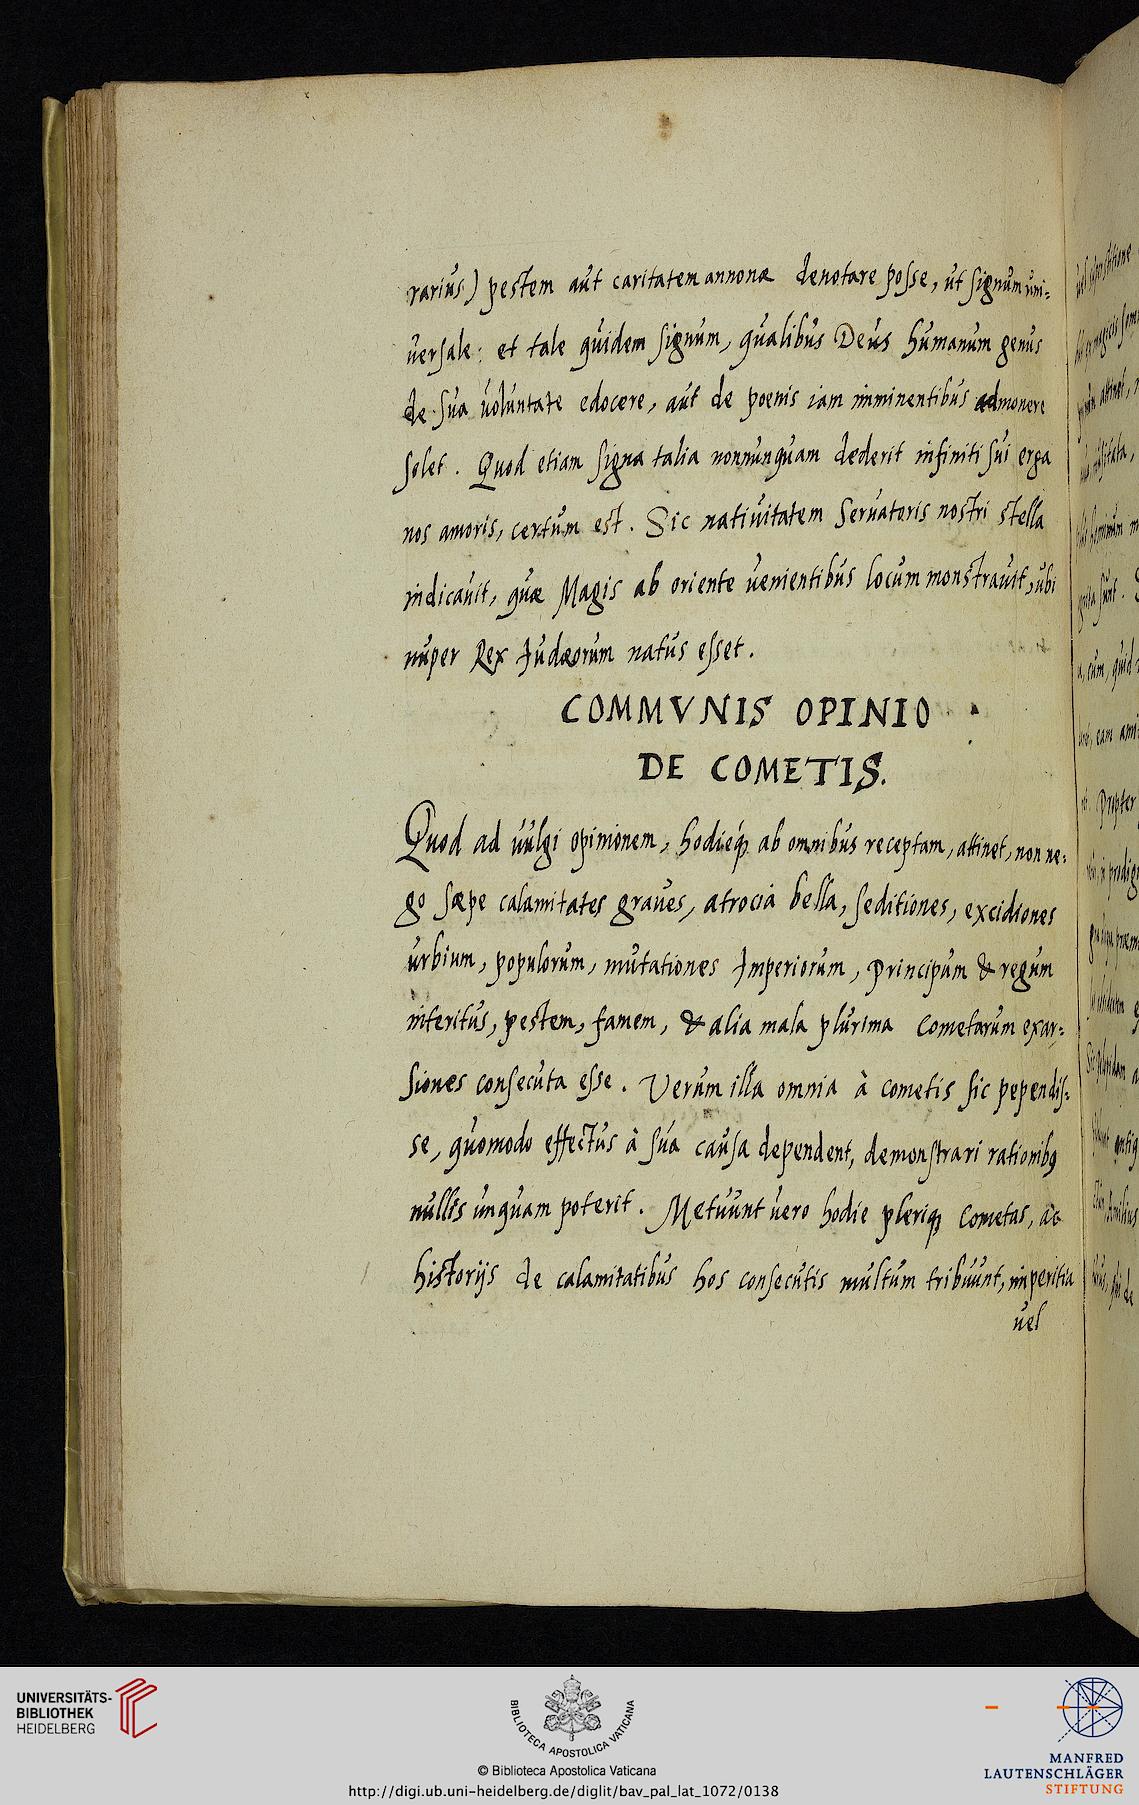 rarius) pestem aut caritatem annonæ denotare posse, ut signum uni-
versale: et tale quidem signum, qualibus Deus humanum genus
de sua voluntate edocere, aut de poenis iam imminentibus admonere
solet. Quod etiam signa talia nonnunquam dederit infiniti sui erga
nos amoris, certum est. Sic nativitatem Servatoris nostri stella
indicavit, quæ Magis ab oriente venientibus locum monstravit, ubi
nuper Rex Judæorum natus esset.
COMMVNIS OPINIO
DE COMETIS.
Quod ad vulgi opinionem, hodieq́ꝫ ab omnibus receptam, attinet, non ne-
go sæpe calamitates graves, atrocia bella, seditiones, excidiones
urbium, populorum, mutationes Imperiorum, Principum & regum
interitus, pestem, famem, & alia mala plurima Cometarum exar-
siones consecuta esse. Verum illa omnia à cometis sic pependis-
se, quomodo effectus à sua causa dependent, demonstrari rationibꝯ
nullis unquam poterit. Metuunt vero hodie pleriqꝫ Cometas, ac
historijs de calamitatibus hos consecutis multum tribuunt, imperitia
vel
UNIVERSITÄTS-
BIBLIOTHEK
HEIDELBERG
BIBLIOTECA APOSTOLICA VATICANA
© Biblioteca Apostolica Vaticana
http://digi.ub.uni-heidelberg.de/diglit/bav_pal_lat_1072/0138
MANFRED
LAUTENSCHLÄGER
STIFTUNG